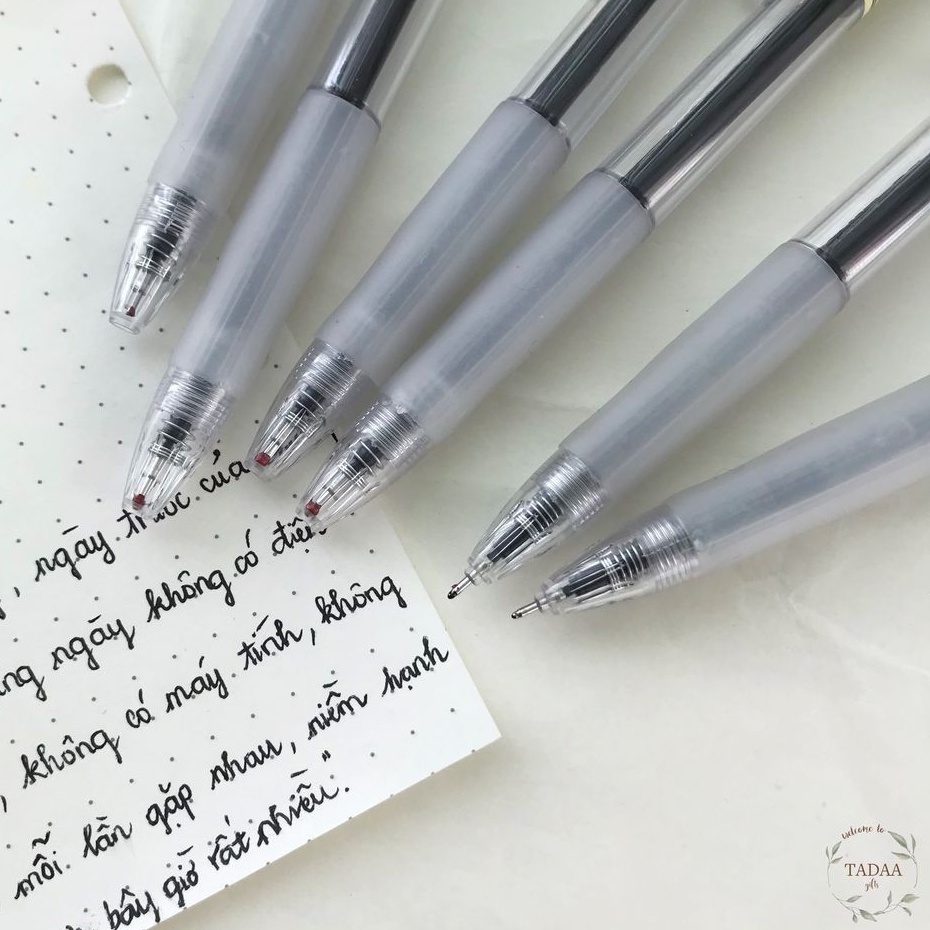 , ngày trước của
ng ngày không có điện
, không có máy tính, không
mỗi lần gặp nhau, niềm hạnh
bây giờ rất nhiều."
welcome to
TADAA
gifts